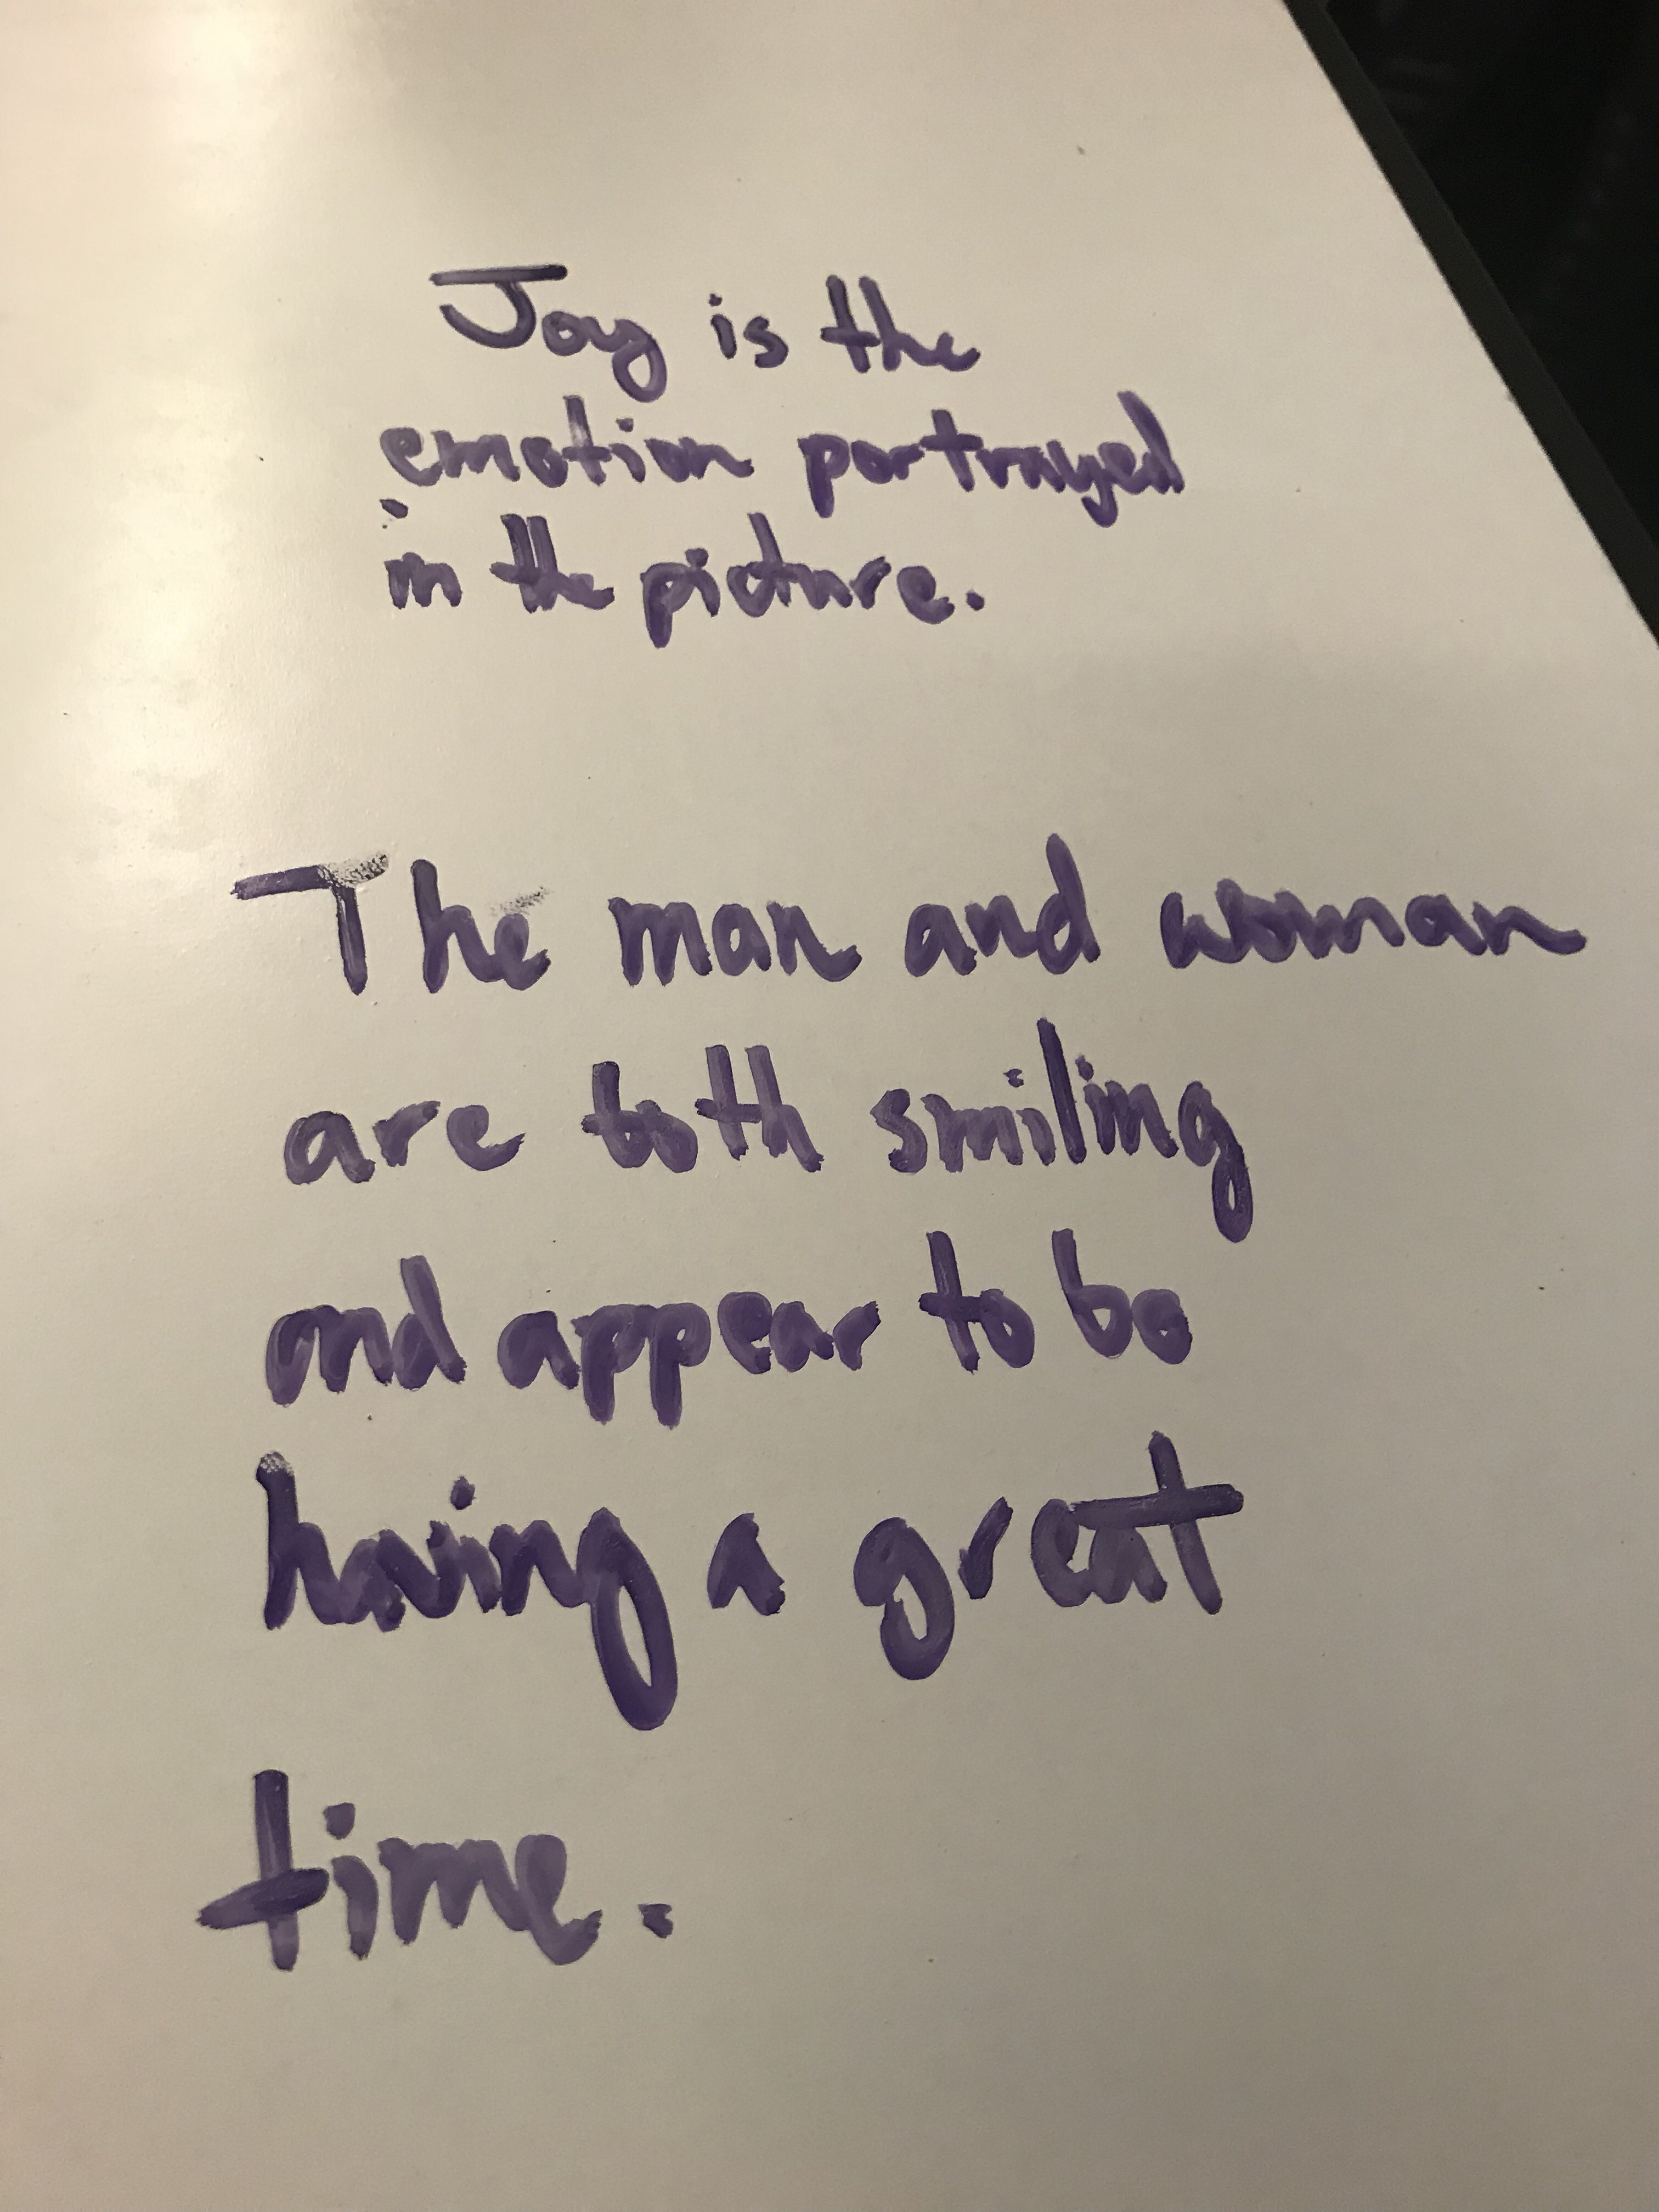 Joy is the
emotion portrayed
in the picture.
The man and woman
are both smiling
and appear to be
having a great
time.